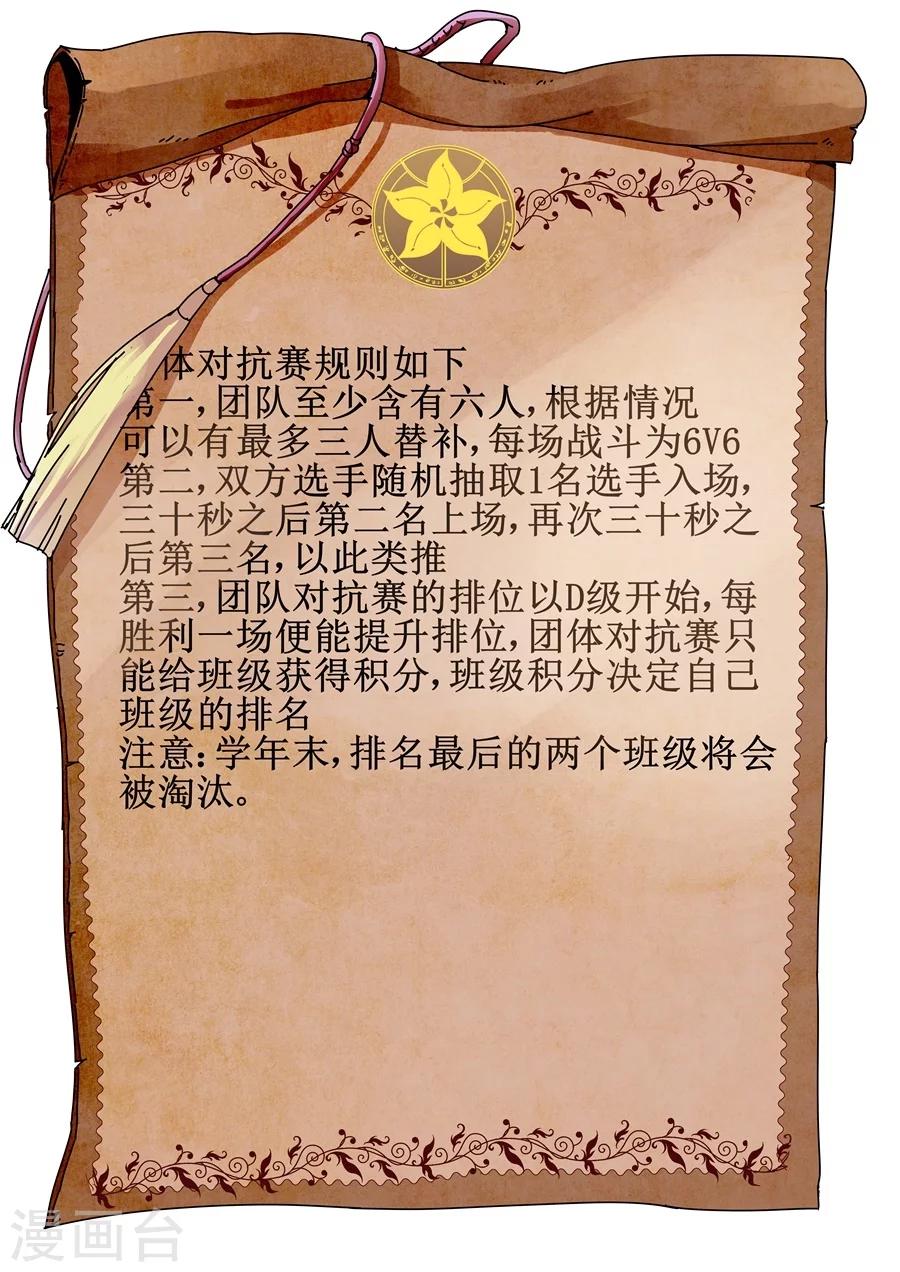 体对抗赛规则如下
第一,团队至少含有六人,根据情况
可以有最多三人替补,每场战斗为6V6
第二,双方选手随机抽取1名选手入场,
三十秒之后第二名上场,再次三十秒之
后第三名,以此类推
第三,团队对抗赛的排位以D级开始,每
胜利一场便能提升排位,团体对抗赛只
能给班级获得积分,班级积分决定自己
班级的排名
注意:学年末,排名最后的两个班级将会
被淘汰。
漫画台